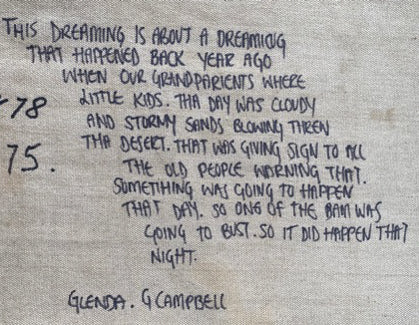 THIS DREAMING IS ABOUT A DREAMIOIG
THAT HAPPENED BACK YEAR AGO
WHEN OUR GRANDPARIENTS WHERE
78 LITTLE KIDS. THA DAY WAS CLOUDY
AND STORMY SANDS BLOWING THREN
75. THA DESERT. THAT WAS GIVING SIGN TO ALL
THE OLD PEOPLE WORNING THAT.
SOMETHING WAS GOING TO HAPPEN
THAT DAY. SO ONE OF THE BAM WAS
GOING TO BUST. SO IT DID HAPPEN THAT
NIGHT.
GLENDA. G CAMPBELL